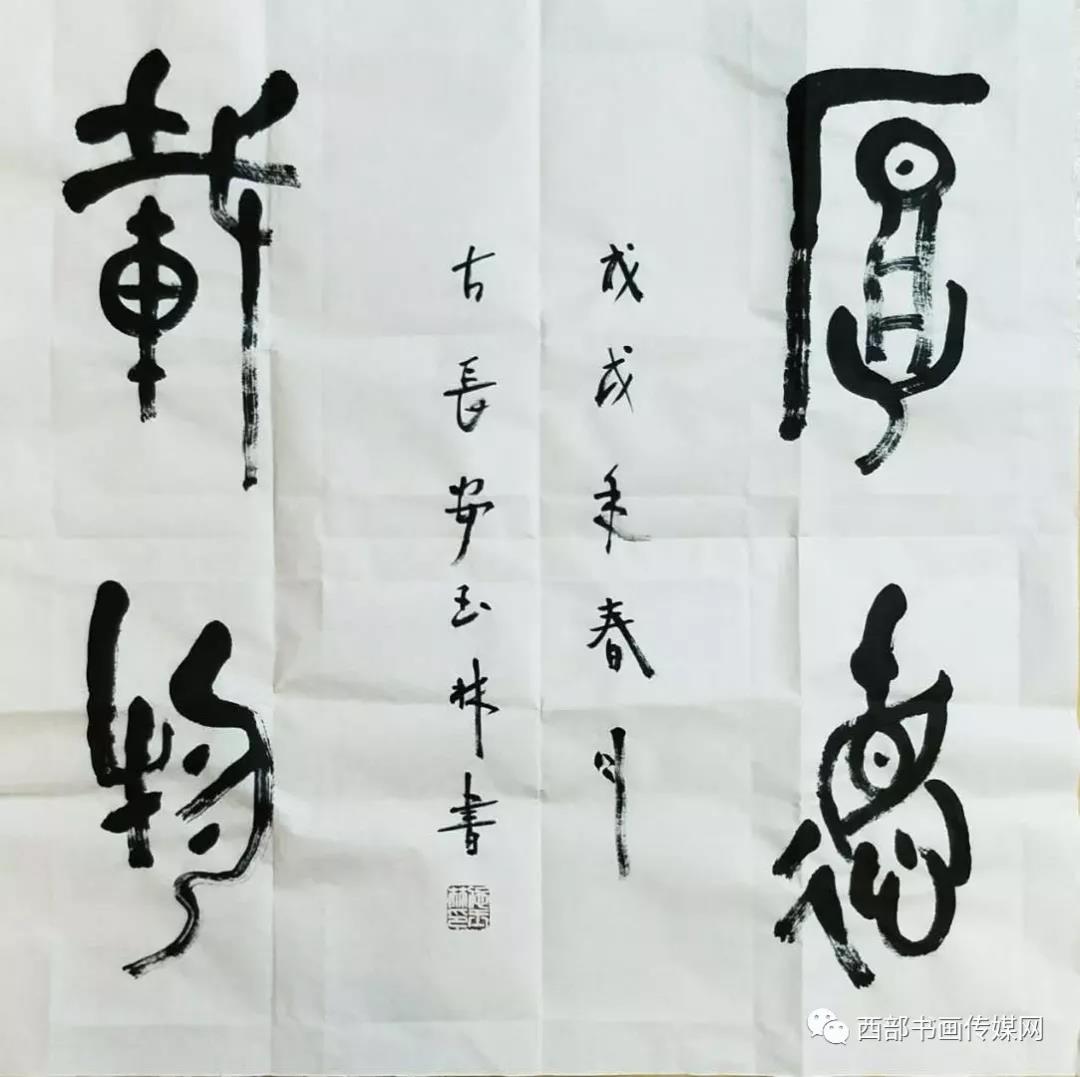 厚德
載物
戊戌年春月
古長安玉林書
西部书画传媒网